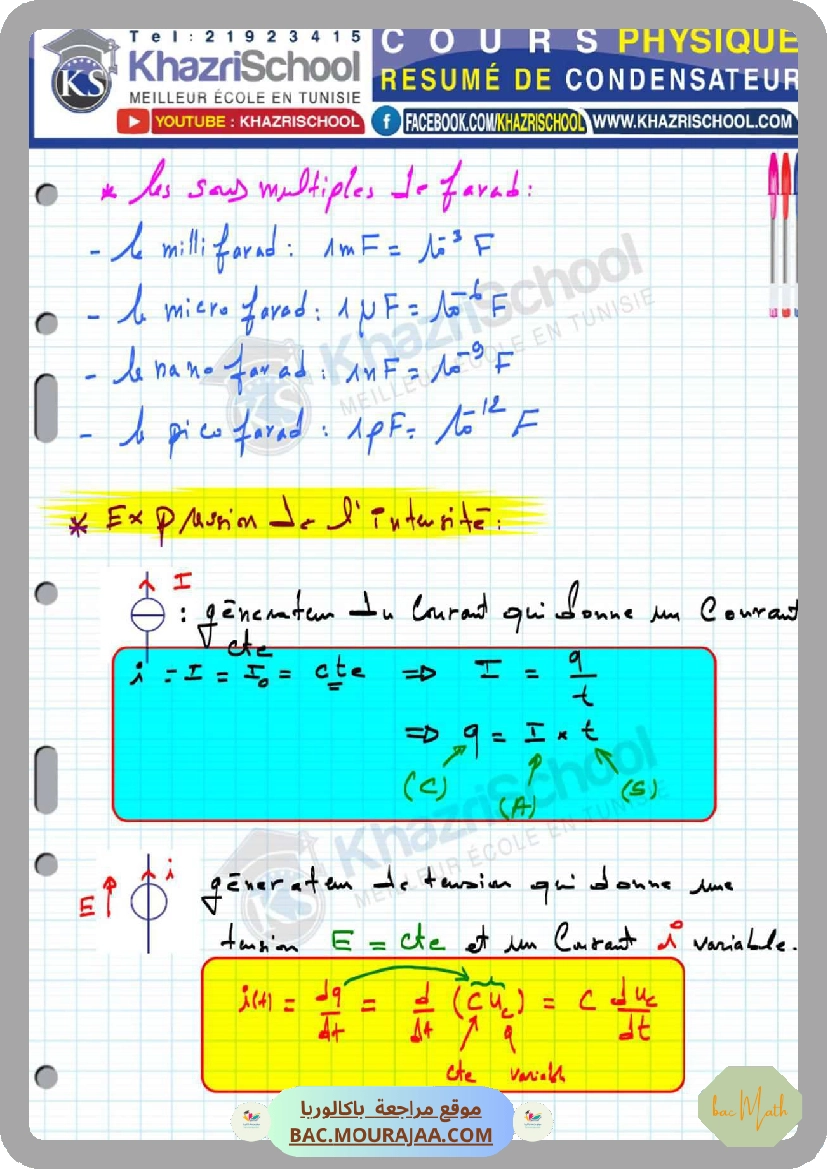 Tel: 21923415
KhazriSchool
MEILLEUR ÉCOLE EN TUNISIE
COURS PHYSIQUE
RESUMÉ DE CONDENSATEUR
YOUTUBE : KHAZRISCHOOL
FACEBOOK.COM/KHAZRISCHOOL
WWW.KHAZRISCHOOL.COM
KS
* les sous multiples de farad :
- le milli farad : 1mF = 10⁻³ F
- le micro farad : 1µF = 10⁻⁶ F
- le nano farad : 1nF = 10⁻⁹ F
- le pico farad : 1pF = 10⁻¹² F
KhazriSchool
MEILLEUR ÉCOLE EN TUNISIE
KS
* Expression de l'intensité :
I
: générateur du Courant qui donne un Courant
cte
i = I = I₀ = cte ⇒ I = q/t
⇒ q = I × t
(C) (A) (S)
KhazriSchool
MEILLEUR ÉCOLE EN TUNISIE
KS
E i
générateur de tension qui donne une
tension E = cte et un Courant i variable.
i(t) = dq/dt = d/dt (C u_c) = C du_c/dt
q
cte variable
موقع مراجعة باكالوريا
BAC.MOURAJAA.COM
bac Math